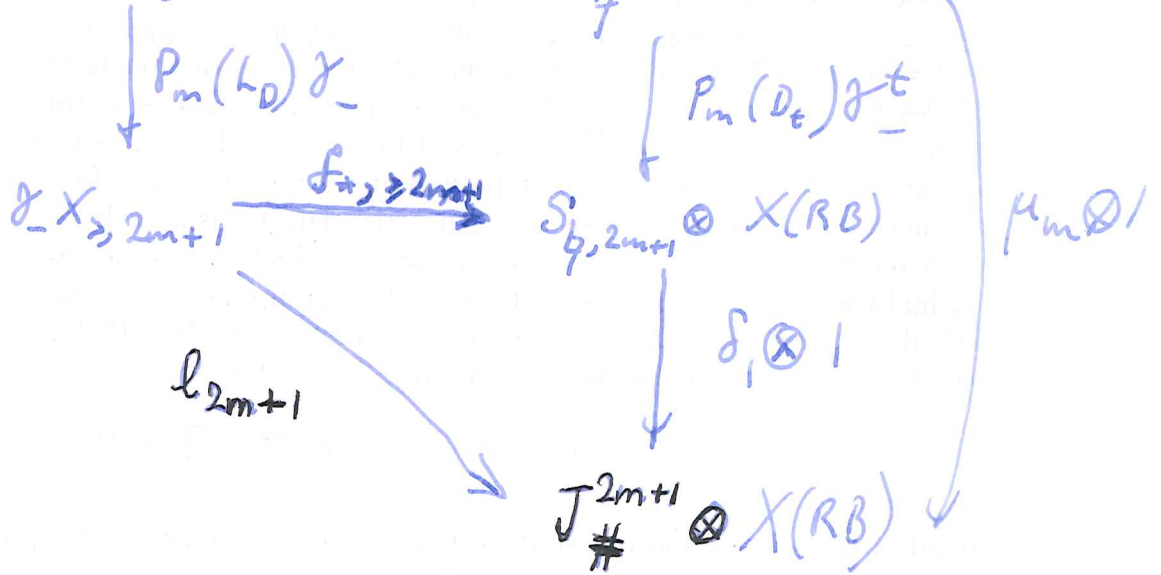 P_m(L_D) γ_-
P_m(D_t) γ_-^t
f_{*, ≥2m+1}
γ_- X_{≥, 2m+1}
S_{♮, 2m+1} ⊗ X(RB)
μ_m ⊗ 1
δ_1 ⊗ 1
l_{2m+1}
J_#^{2m+1} ⊗ X(RB)